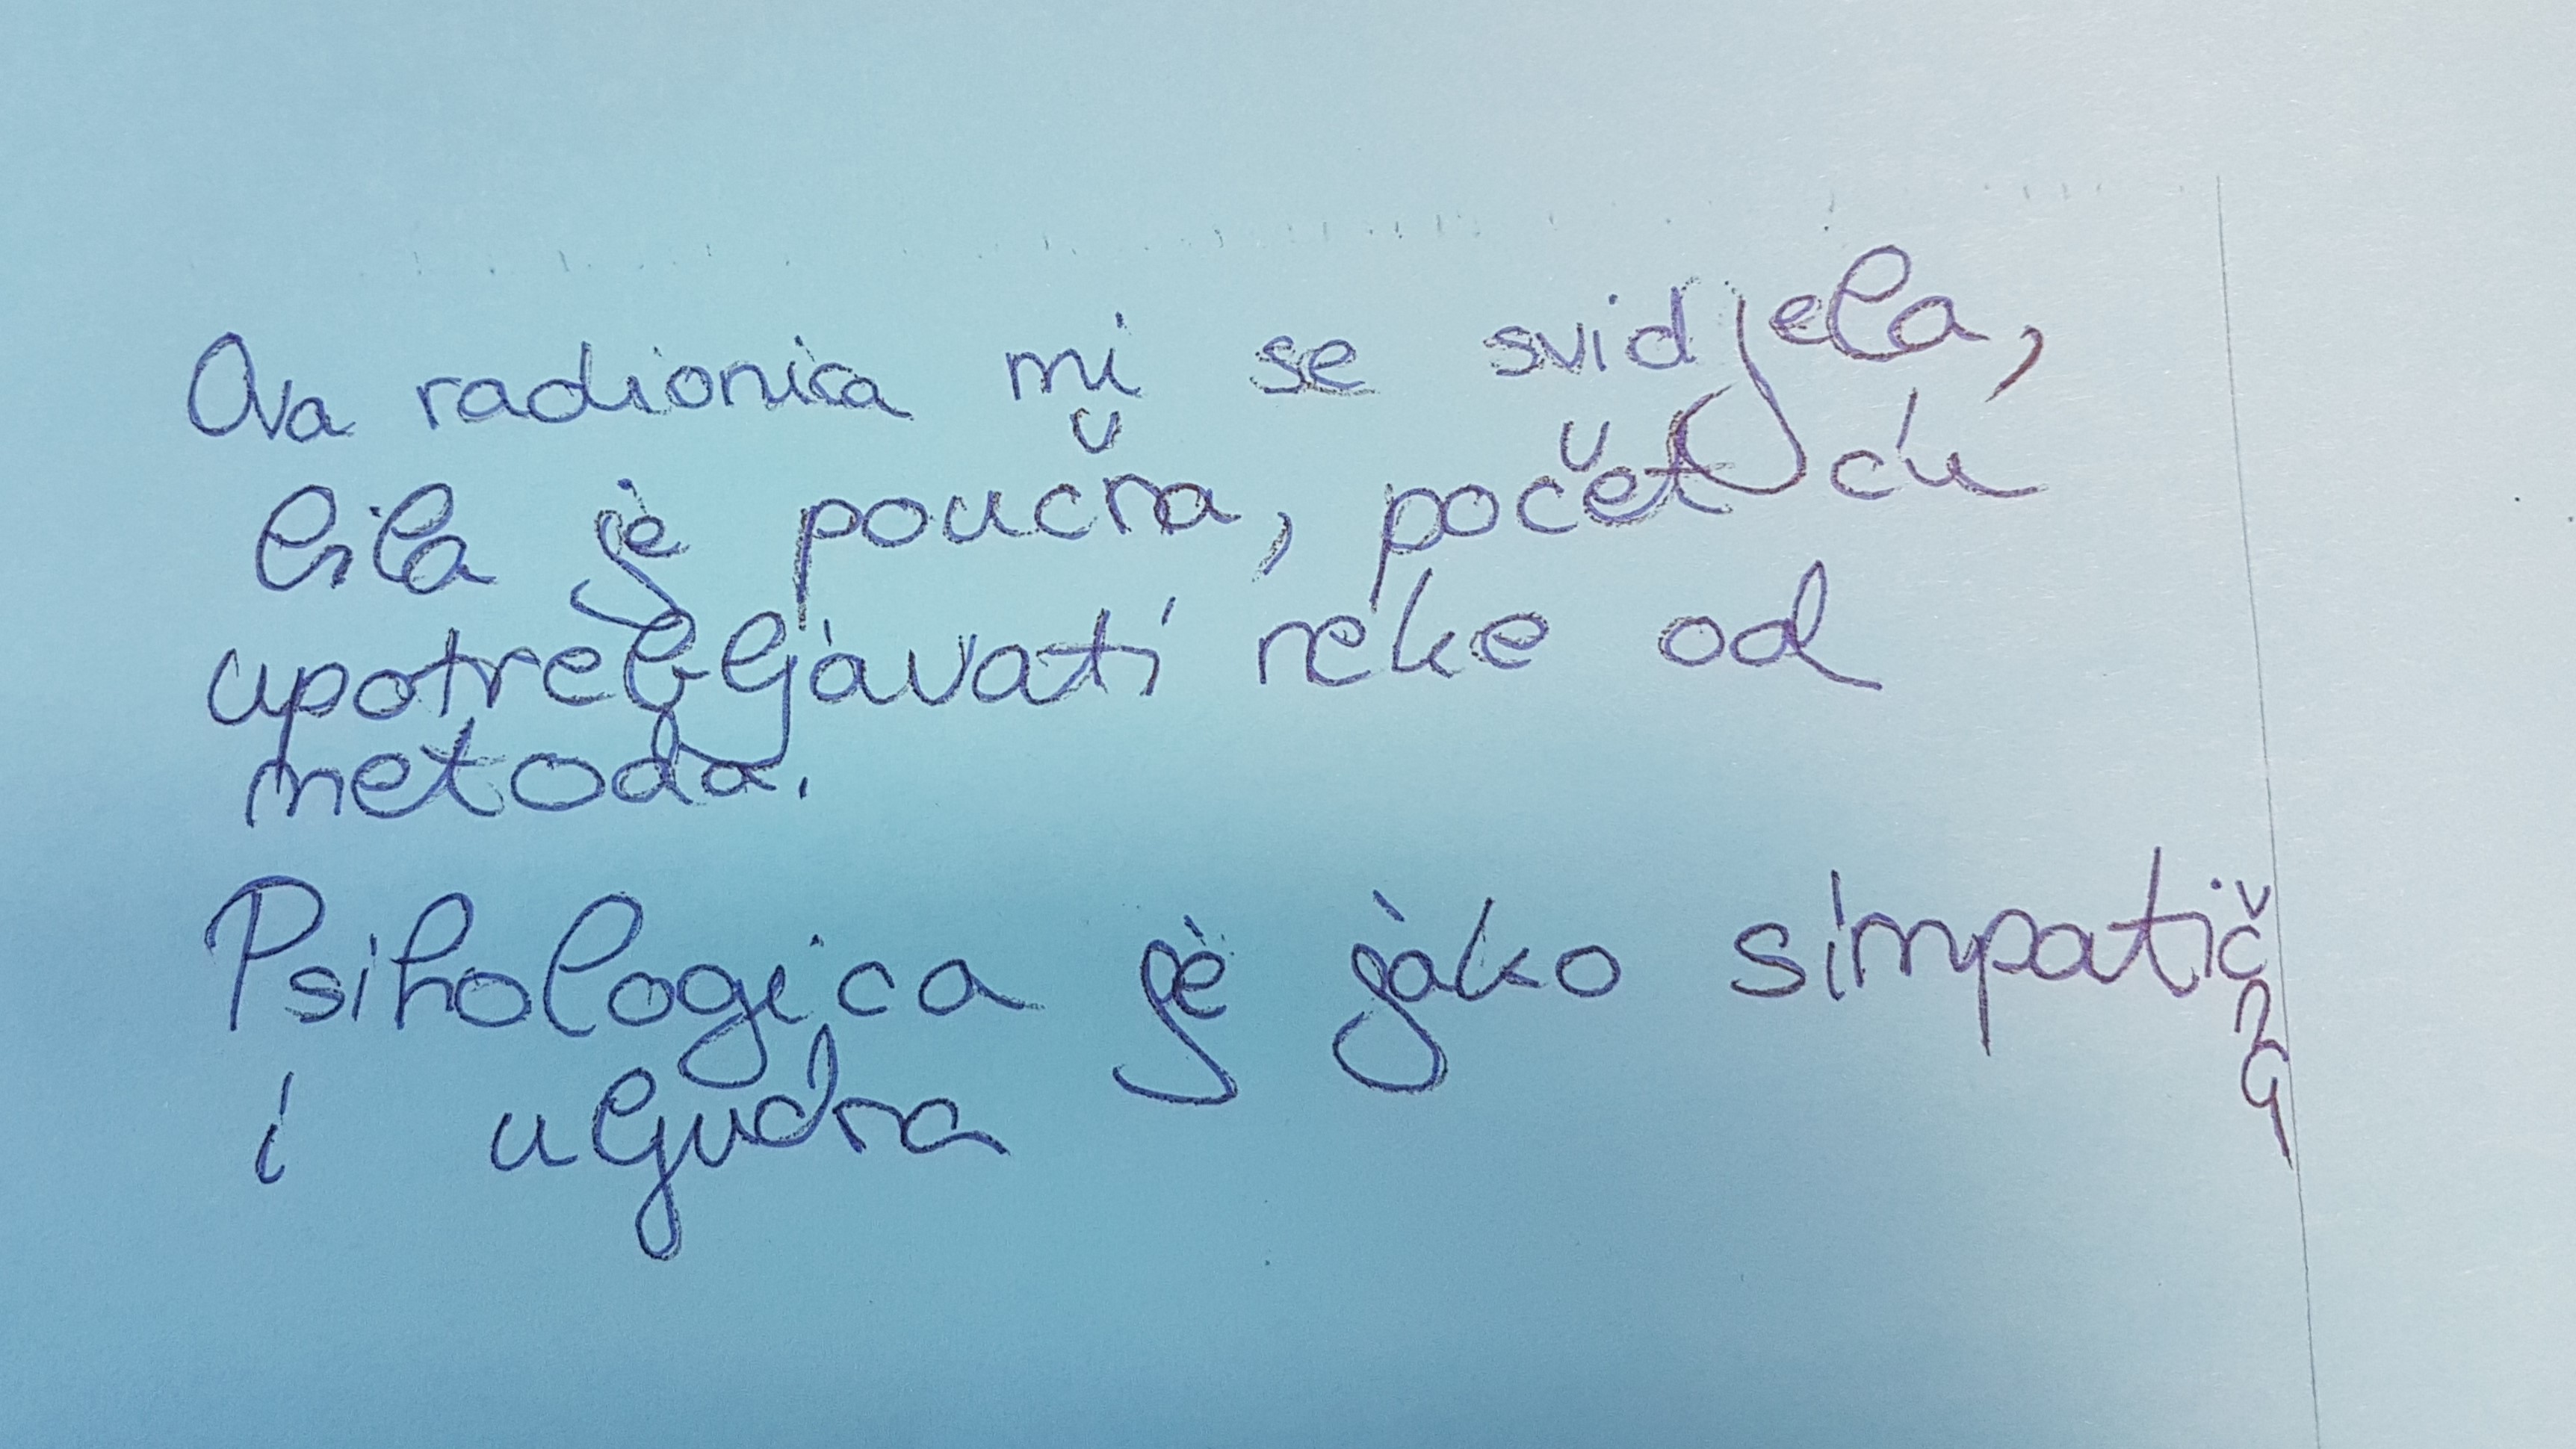 Ova radionica mi se svidjela,
bila je poučna, počet ću
upotrebljavati neke od
metoda.
Psihologica je jako simpatična
i uljudna